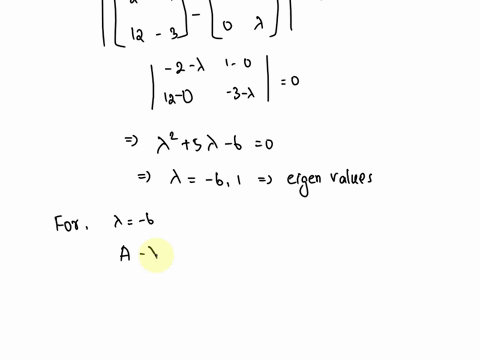 12 -3 ] - 0 λ ] |
| -2-λ 1-0 |
| 12-0 -3-λ | = 0
=) λ² +5 λ -6 =0
=) λ = -6, 1 =) eigen values
For, λ = -6
A - λ